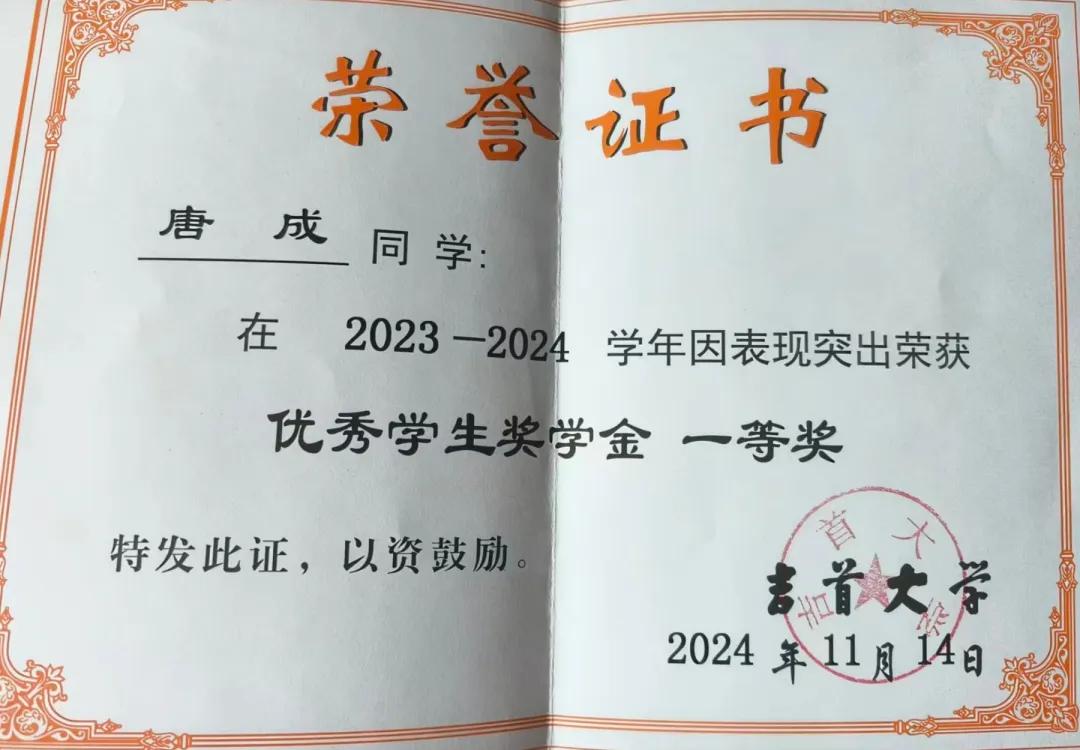 荣誉证书
唐成同学:
在 2023—2024 学年因表现突出荣获
优秀学生奖学金 一等奖
特发此证，以资鼓励。
吉首大学
吉首大学
2024年11月14日